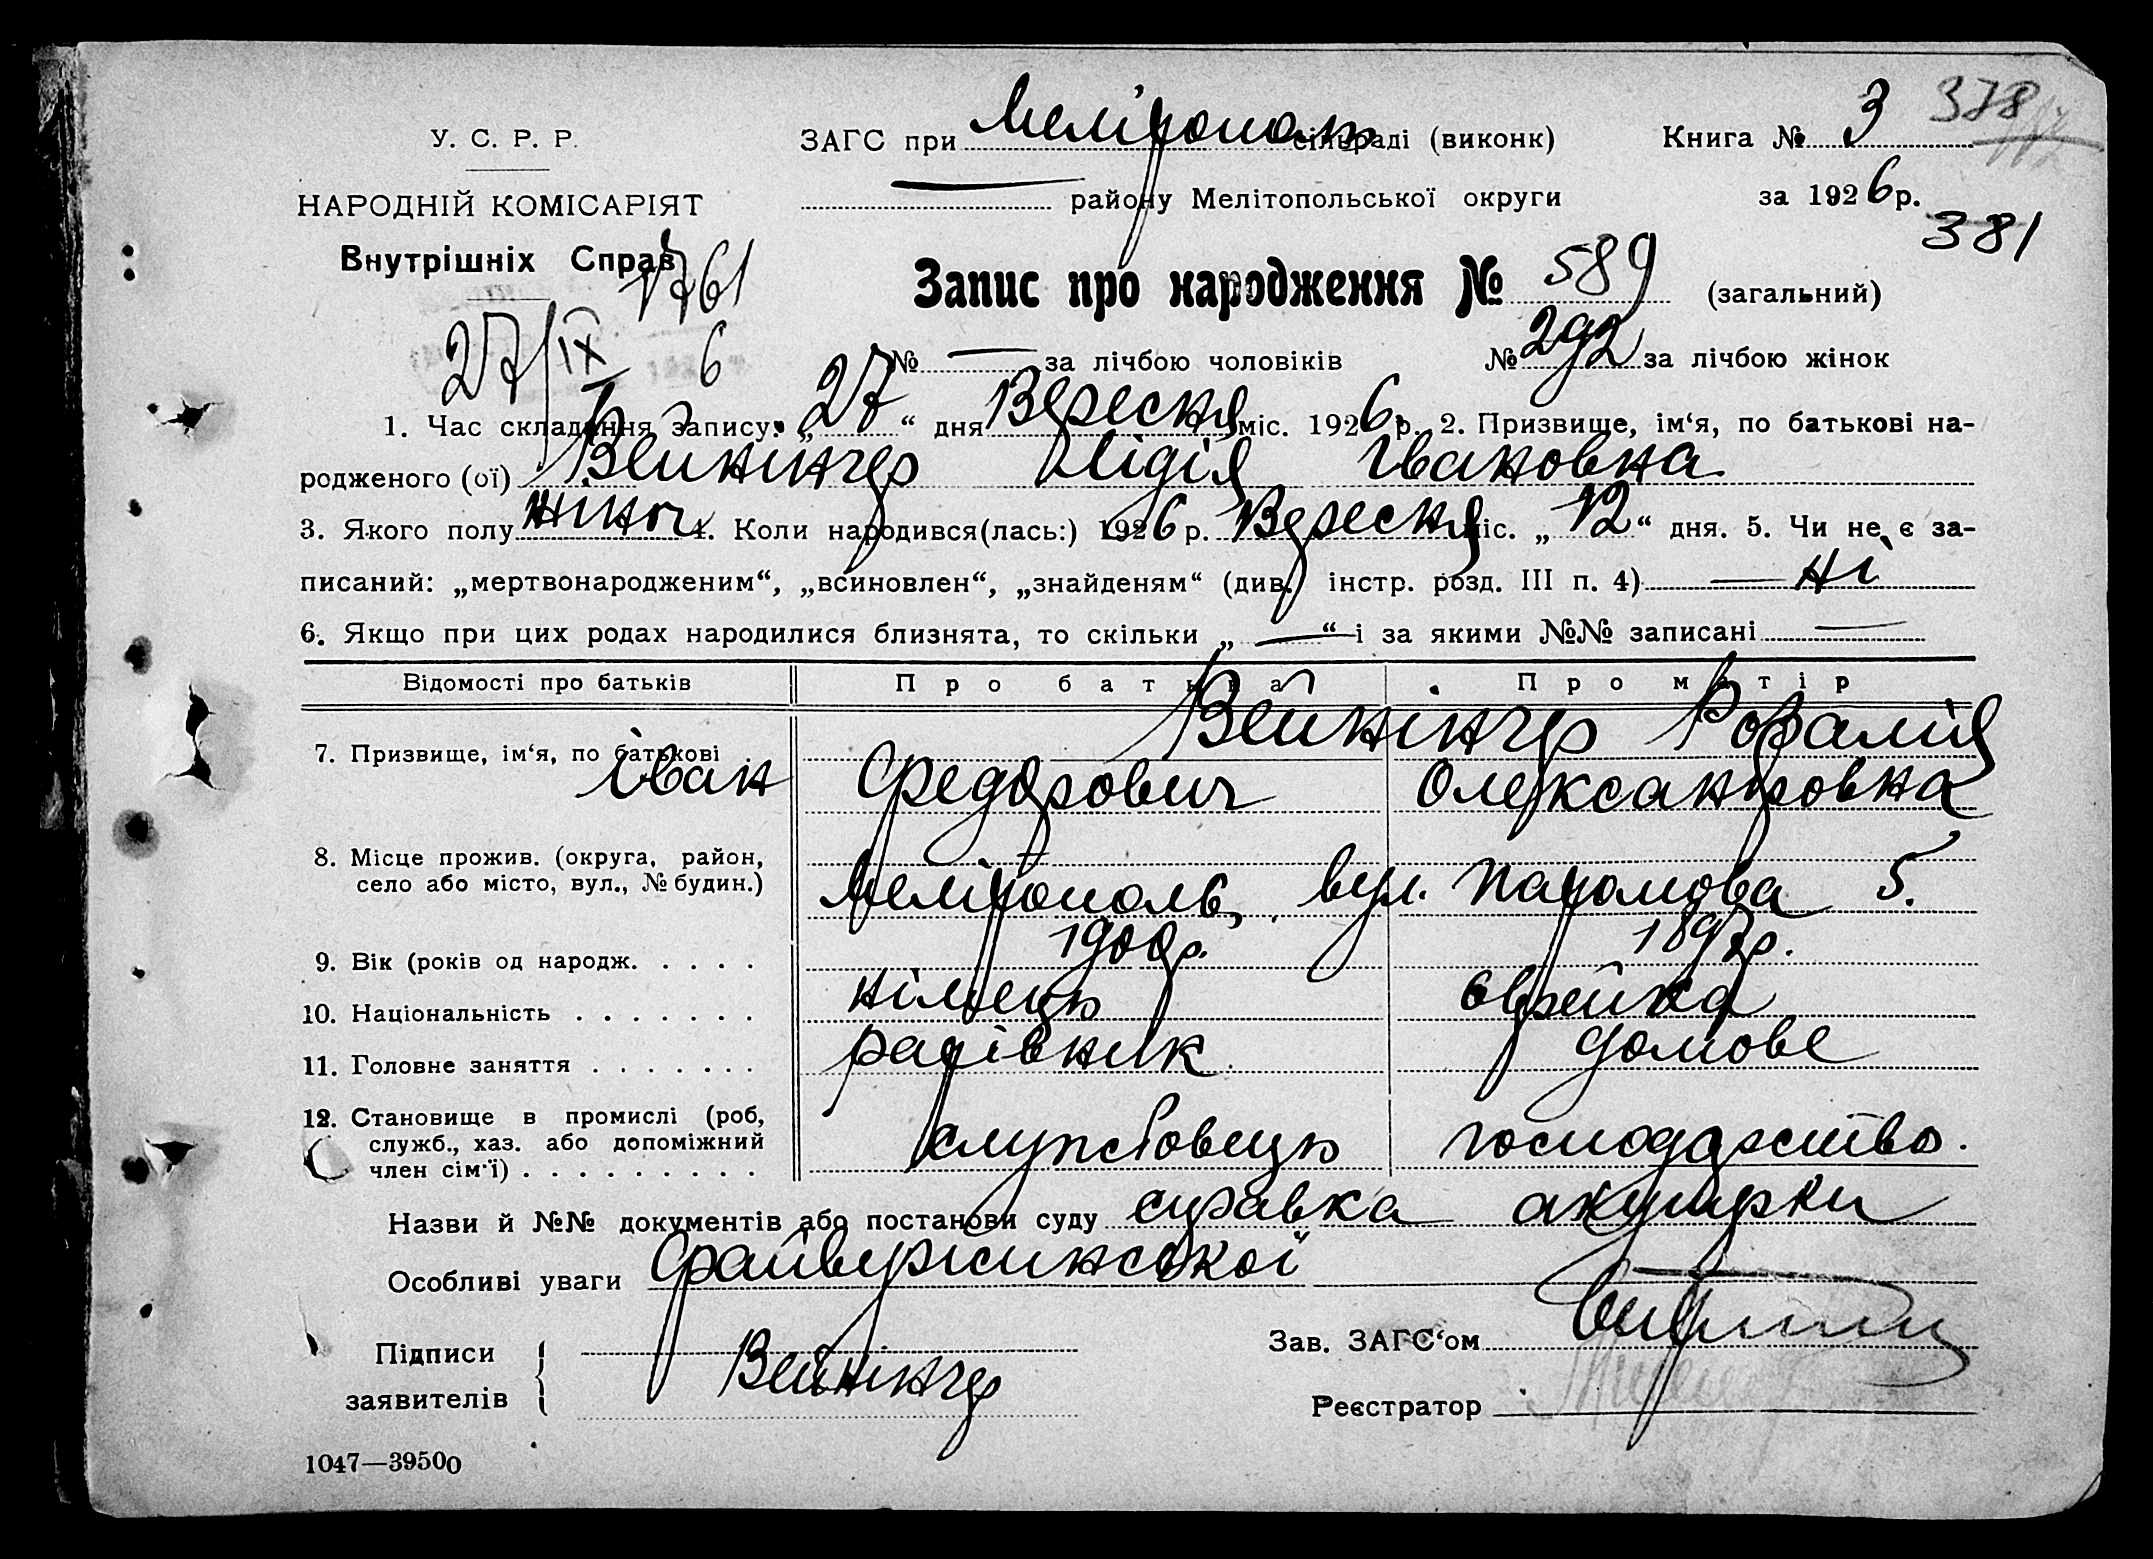 У. С. Р. Р.
НАРОДНІЙ КОМІСАРІЯТ
Внутрішніх Справ
1761
27/IX 6
ЗАГС при Мелітополь сільраді (виконк)
— району Мелітопольської округи
Книга № 3 378
за 1926 р.
381
Запис про народження № 589 (загальний)
№ — за лічбою чоловіків № 292 за лічбою жінок
1. Час складання запису: „27“ дня Вересня міс. 1926 р. 2. Призвище, ім‘я, по батькові на-
родженого (ої) Вейнінгер Лідія Івановна
3. Якого полу жіноч. 4. Коли народився(лась:) 1926 р. Вересня міс. „12“ дня. 5. Чи не є за-
писаний: „мертвонародженим“, „всиновлен“, „знайденям“ (див. інстр. розд. III п. 4) — ні
6. Якщо при цих родах народилися близнята, то скільки „—“ і за якими №№ записані —
Відомості про батьків Про батька Про матір
7. Призвище, ім‘я, по батькові Вейнінгер Розалія
Іван Федорович Олександровна
8. Місце прожив. (округа, район,
село або місто, вул., № будин.) Мелітополь, вул. Паромова 5.
9. Вік (років од народж. . . . . 1900 р. 1897 р.
10. Національність . . . . . . . німець єврейка
11. Головне заняття . . . . . . . рахівник домове
12. Становище в промислі (роб,
служб., хаз. або допоміжний
член сім‘ї) . . . . . . . . . службовець господарство.
Назви й №№ документів або постанови суду справка акушерки
Особливі уваги Файвужинської
Підписи
заявителів
Вейнінгер
Зав. ЗАГС‘ом
Реєстратор
1047—39500